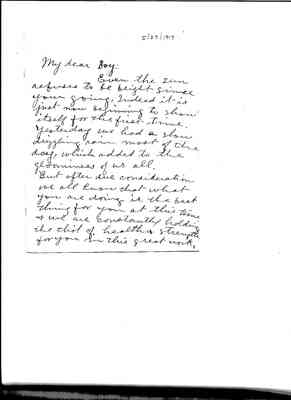 5/27/1917
My dear Boy:
Even the sun
refuses to be bright since
your going. Indeed it is
just now beginning to show
itself for the first time.
Yesterday we had a slow
drizzling rain most of the
day, which added to the
gloominess of us all.
But after due consideration
we all know that what
you are doing is the best
thing for you at this time
& we are constantly holding
the thot of health & strength
for you in this great work,